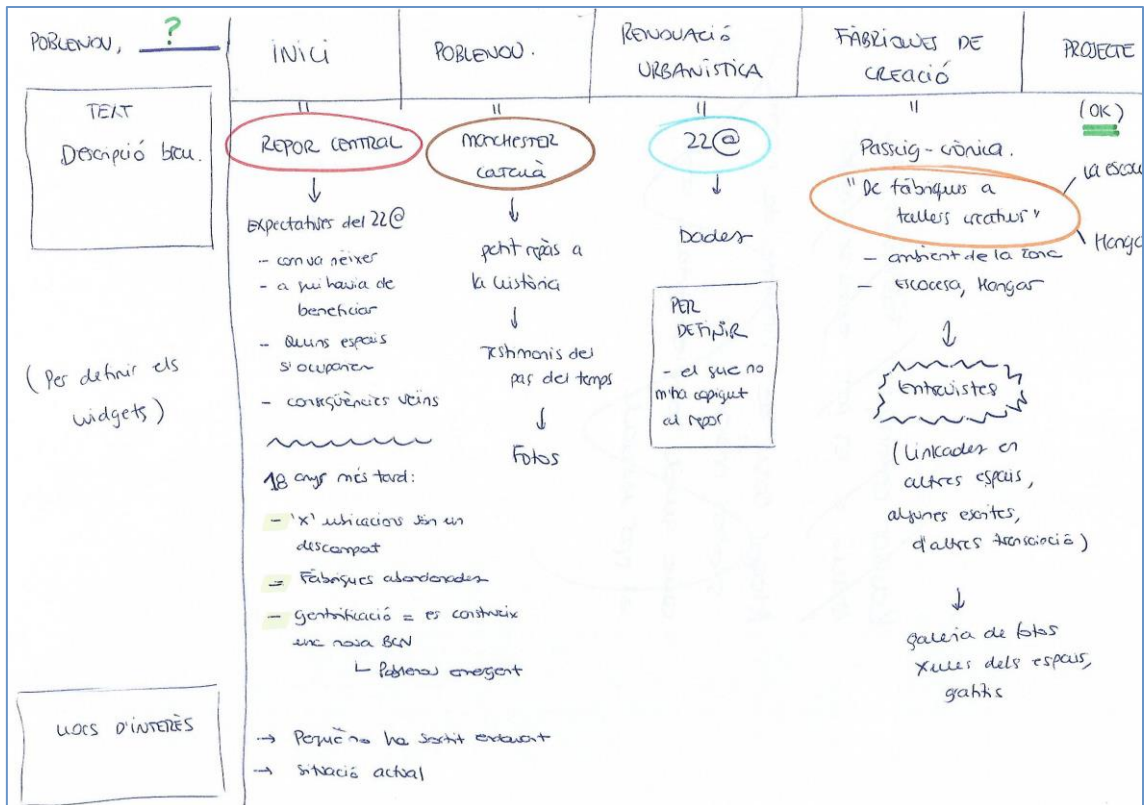 POBLENOU, ?
TEXT
Descripció breu.
(Per definir els
widgets)
LLOCS D'INTERÈS
INICI
"
REPOR CENTRAL
↓
Expectatives del 22@
- com va néixer
- a qui havia de
beneficiar
- Quins espais
s'ocuparien
- conseqüències veïns
18 anys més tard:
- 'x' ubicacions són un
descampat
- Fàbriques abandonades
- gentrificació = es construeix
una nova BCN
Poblenou emergent
→ Perquè no ha sortit endavant
→ Situació actual
POBLENOU.
"
MANCHESTER
CATALÀ
↓
petit repàs a
la història
↓
Testimonis del
pas del temps
↓
Fotos
RENOVACIÓ
URBANÍSTICA
"
22@
↓
Dades
PER
DEFINIR
- el que no
m'ha capigut
al repor
FÀBRIQUES DE
CREACIÓ
"
Passeig-crònica.
"De fàbriques a
tallers creatius"
- ambient de la zona
- Escocesa, Hangar
↓
Entrevistes
(Linkades en
altres espais,
algunes escrites,
d'altres transcripció)
↓
galeria de fotos
xules dels espais,
gatitis
PROJECTE
(OK)
La escoce
Hanga